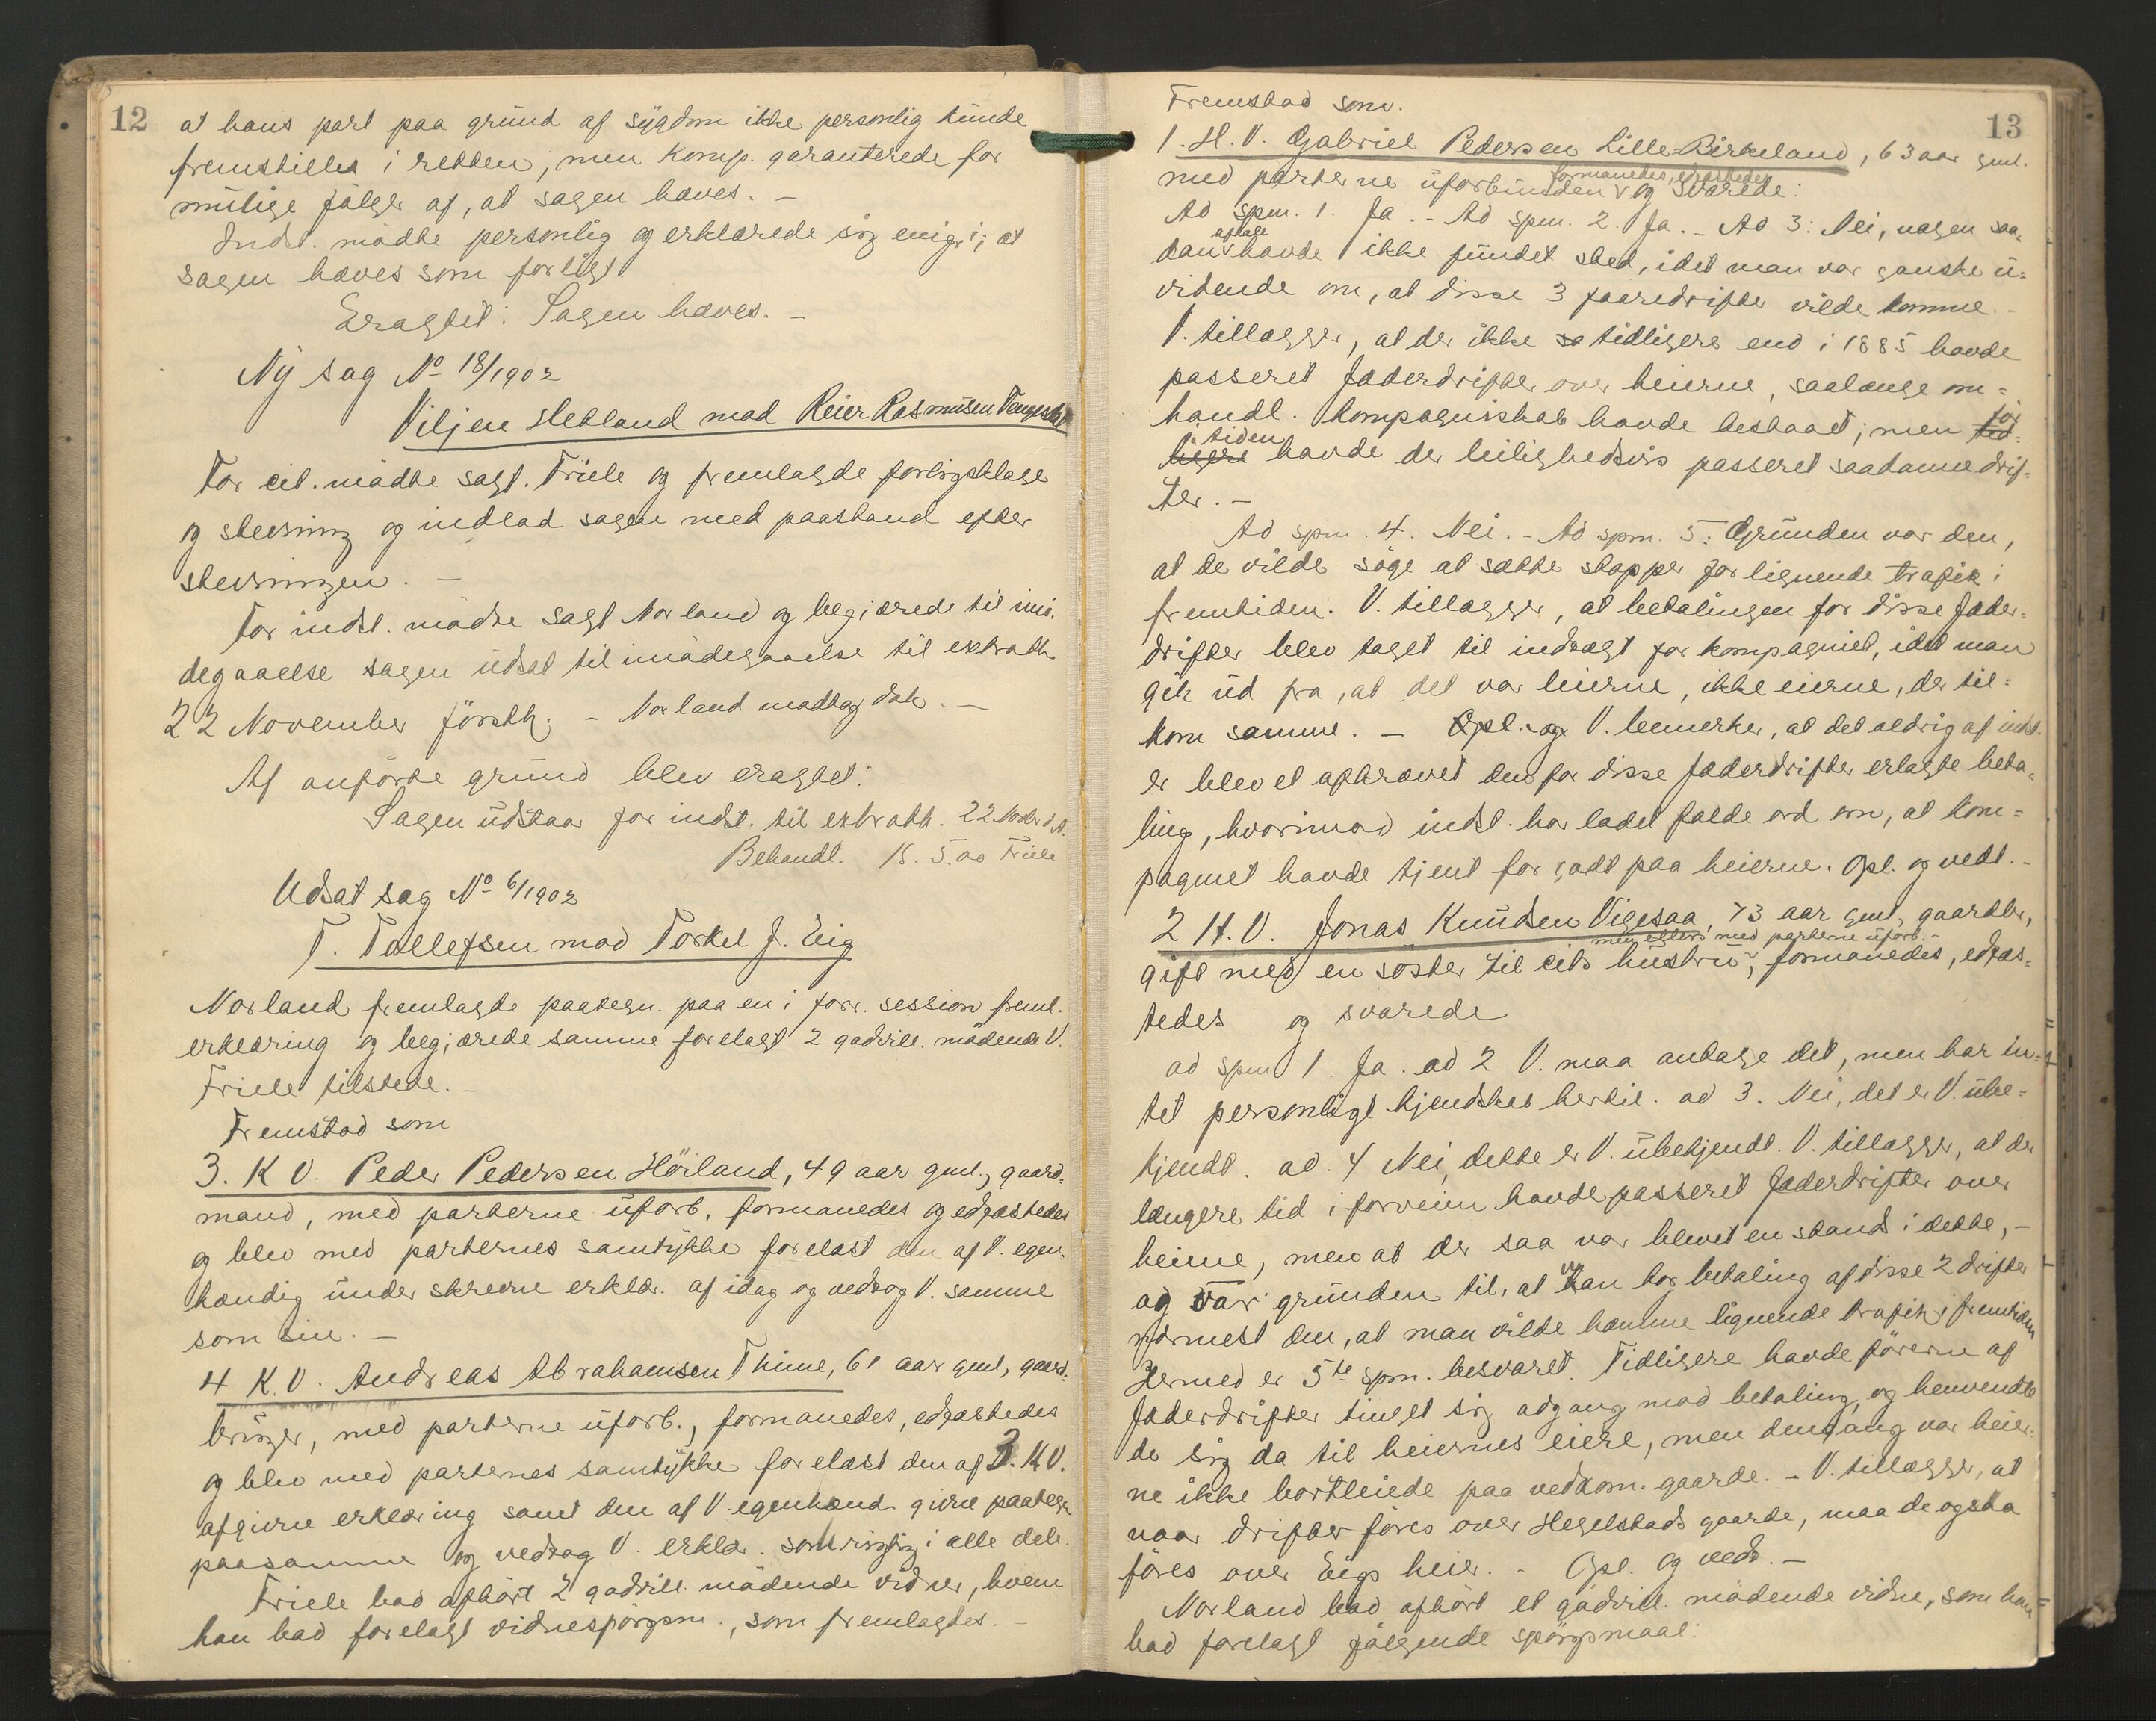 12
at hans part paa grund af sygdom ikke personlig kunde
fremstilles i retten, men komp. garanterede for
mulige fölger af, at sagen hæves. –
Indst. mödte personlig og erklærede sig enig i, at
sagen hæves som forligt.
Eragtet: Sagen hæves. –
Ny sag No 18/1902
Viljen Hetland mod Reier Rasmusen
For cit. mödte sagf. Friele og fremlagde forligsklage
og stevning og indlod sagen med paastand efter
stevningen. –
For indst. mödte sagf Norland og begjærede til imö-
degaaelse sagen udsat til imödegaaelse til extrarth
22 November förstk. – Norland modtog dok. –
Af anförte grund blev eragtet:
Sagen udstaar for indst. til extrarth. 22 Novbr d.A.
Behandl. K. 5.00 Friele
Udsat sag No 6/1902
T. Tollefsen mod Torkel J. Eig
Norland fremlagde paategn. paa en i forr. session freml.
erklæring og begjærede samme forelagt 2 godvill. mödende V.
Friele tilstede. –
Fremstod som
3. K V. Peder Pedersen Höiland, 49 aar gml., gaard-
mand, med parterne uforb., formanedes og edfæstedes
og blev med parternes samtykke forelæst den af V. egen-
hændig underskrevne erklær. af idag og vedtog V. samme
som sin. –
4 K.V. Andreas Abrahamsen Thime, 61 aar gml., gaard-
bruger, med parterne uforb., formanedes, edfæstedes
og blev med parternes samtykke forelæst den af 3. K V.
afgivne erklæring samt den af V. egenhænd. givne paategn.
paa samme og vedtog V. erklær. som rigtig i alle dele.
Friele bad afhört 2 godvill. mödende vidner, hvem
han bad forelagt vidnespörgsm., som fremlagdes. –
13
Fremstod som.
1. H. V. Gabriel Pedersen Lille-Birkeland, 63 aar gml.
formanedes, edfæstedes
med parterne uforbunden og svarede:
Ad spm. 1. Ja. – Ad spm. 2. Ja. – Ad 3: Nei, nogen saa-
aftale
dan havde ikke fundet sted, idet man var ganske u-
vidende om, at disse 3 faaredrifter vilde komme. –
V. tillægger, at der ikke tidligere end i 1885 havde
passeret Jæderdrifter over heierne, saalænge om-
handl. kompagniskab havde bestaaet; men för
i tiden
havde der leilighedsvis passeret saadanne drif-
ter. –
Ad spm. 4. Nei. – Ad spm. 5: Grunden var den,
at de vilde söge at sætte stopper for lignende trafik i
fremtiden. V. tillægger, at betalingen for disse Jæder-
drifter blev taget til indtægt for kompagniet, idet man
gik ud fra, at det var leierne, ikke eierne, der til-
kom samme. – V. bemerker, at det aldrig af indst.
er blevet afkrævet den for disse Jæderdrifter erlagte beta-
ling, hvorimod indst. har ladet falde ord om, at kom-
pagniet havde tjent for godt paa heierne. Opl. og vedt. –
2 H.V. Jonas Knudsen Vigesaa, 73 aar gml., gaardbr.,
men ellers med parterne uforb. –
gift med en söster til cits hustru, formanedes, edfæs-
tedes og svarede
ad spm 1. Ja. ad 2 V. maa antage det, men har in-
tet personligt kjendskab hertil. ad 3. Nei, det er V. ube-
kjendt. ad. 4 Nei, dette er V. ubekjendt. V. tillægger, at der
længere tid i forveien havde passeret Jæderdrifter over
heiene, men at der saa var blevet en stands i dette, –
og var grunden til, at man tog betaling af disse 2 drifter
nærmest den, at man vilde hæmme lignende trafik i fremtiden
Hermed er 5te spm. besvaret. Tidligere havde förerne af
Jæderdrifter tinget sig adgang mod betaling, og henvendte
de sig da til heiernes eiere, men dengang var heier-
ne ikke bortleiede paa vedkom. gaarde. – V. tillægger, at
naar drifter föres over Hegelstads gaarde, maa de ogsaa
föres over Eigs heier. – Opl. og vedt. –
Norland bad afhört et godvill. mödende vidne, som han
bad forelagt fölgende spörgsmaal: